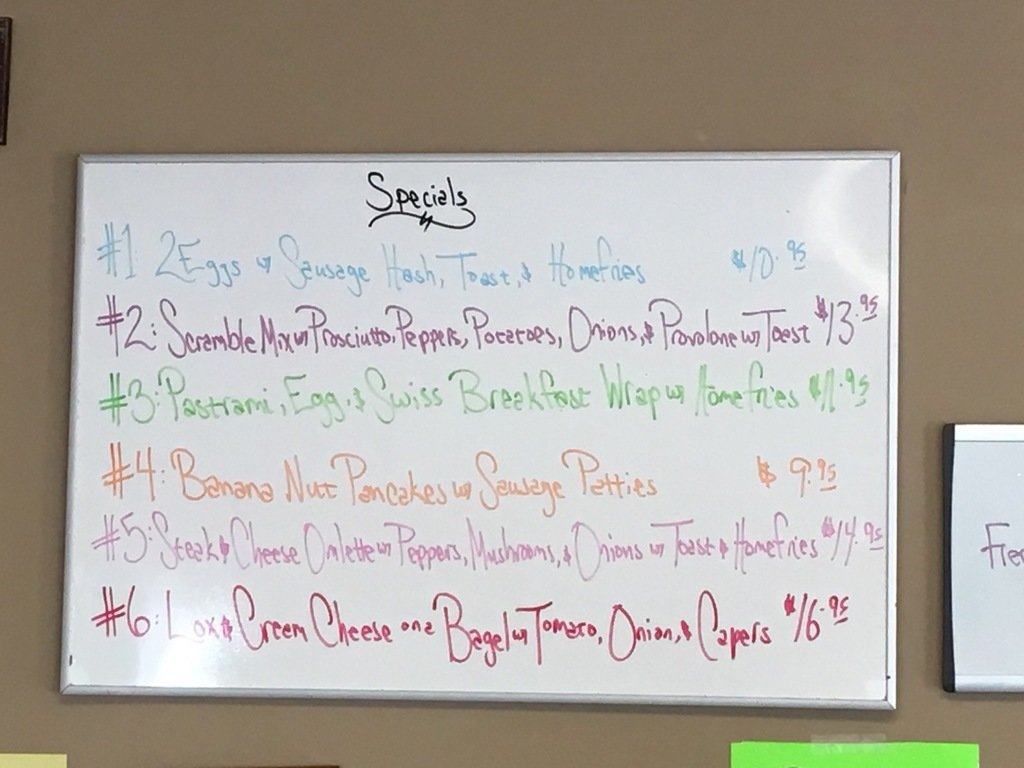 Specials
#1 2 Eggs w Sausage Hash, Toast, & Homefries $10.95
#2: Scramble Mix w Prosciutto, Peppers, Potatoes, Onions, & Provolone w Toast $13.95
#3: Pastrami, Egg, & Swiss Breakfast Wrap w Homefries $11.95
#4: Banana Nut Pancakes w Sausage Patties $9.95
#5: Steak & Cheese Omlette w Peppers, Mushrooms, & Onions w Toast & Homefries $14.95
#6: Lox & Creem Cheese on a Bagel w Tomato, Onion, & Capers $16.95